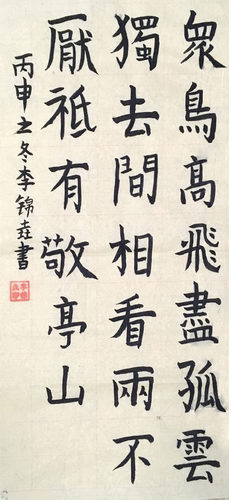 眾鳥高飛盡孤雲
獨去間相看兩不
厭祗有敬亭山
丙申之冬李錦垚書